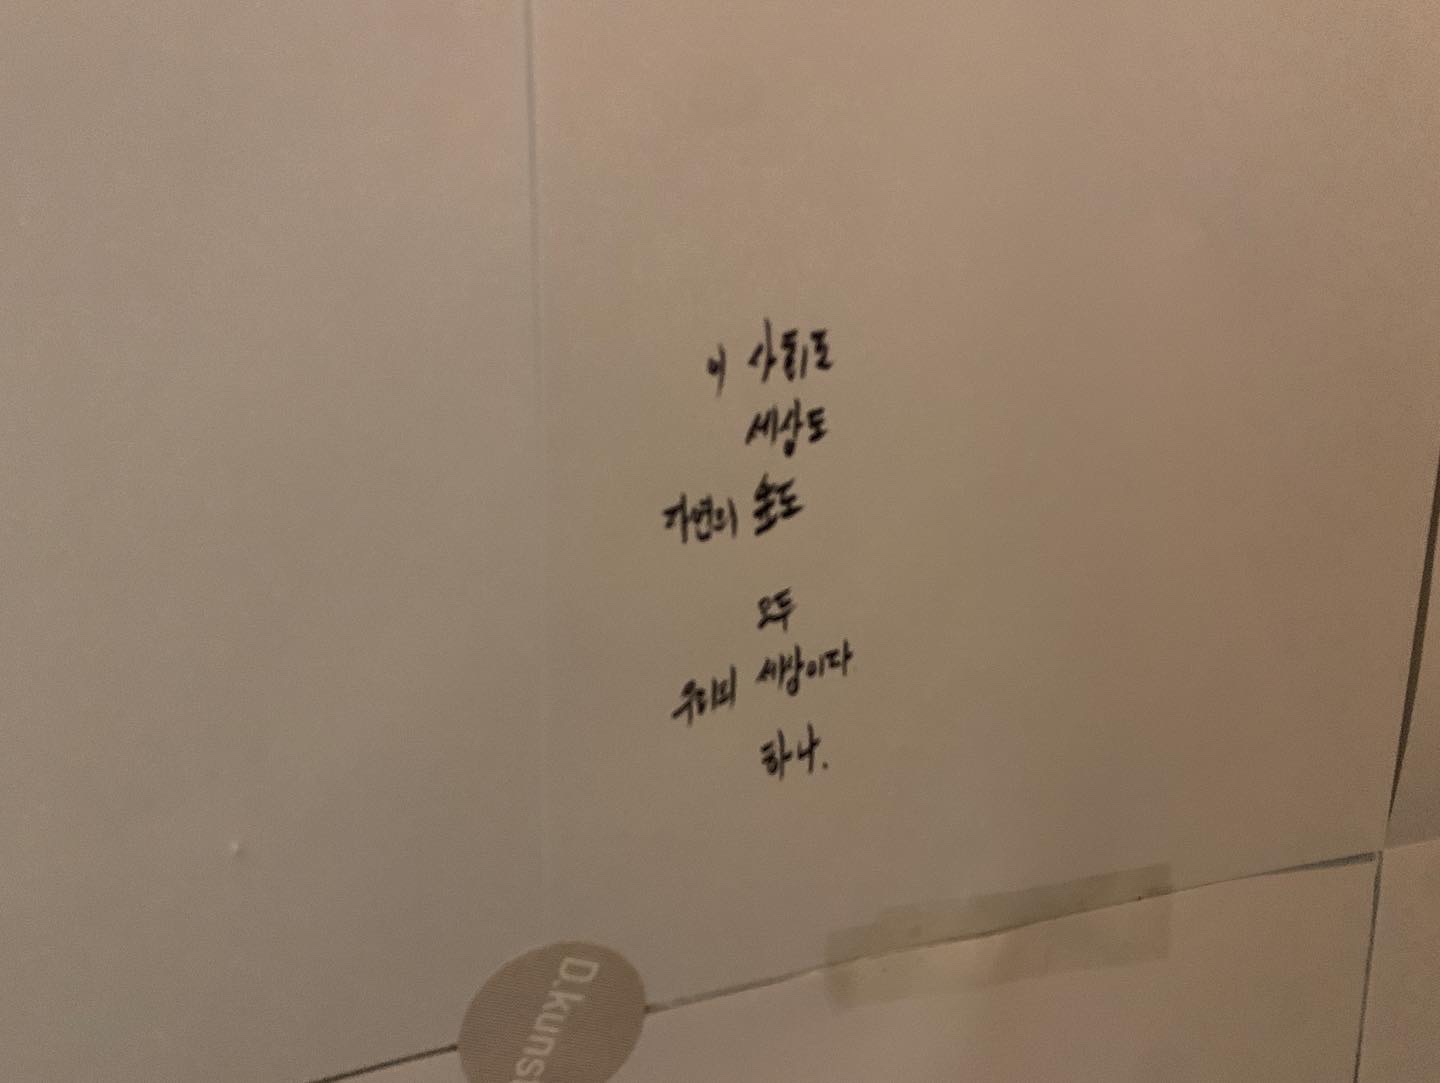 이 사회도
세상도
자연의 숲도
모두
우리의 세상이다
하나.
D.kuns